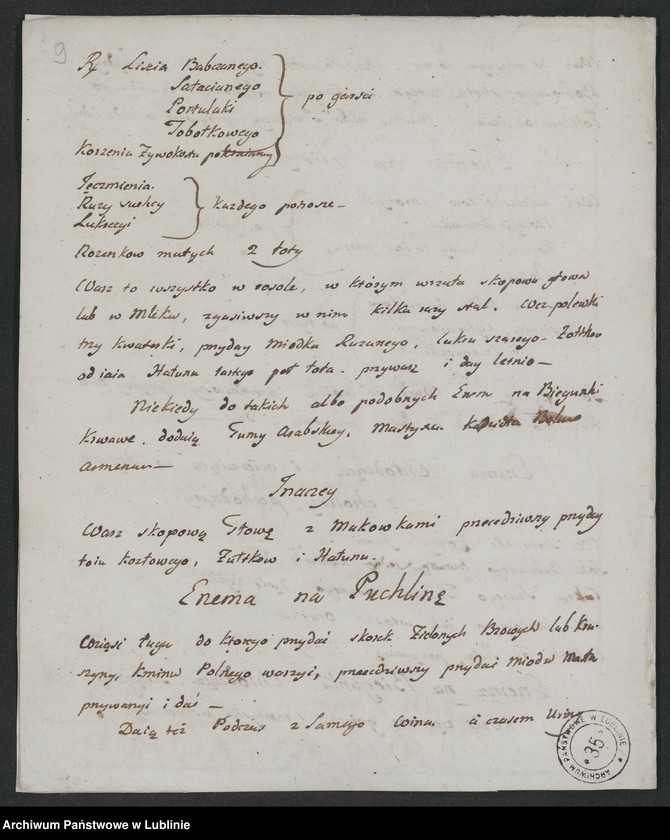 9
Rp Liscia Babczanego.
Sałacianego
Portulaki
Tobołkowego
po garści
Korzenia Żywokostu
Jęczmienia.
Ruży suchey
Lukrecyi
Każdego potrosze—
Rozenkow małych 2 łoty
Warz to wszystko w rosole, w którym wrzała skopowa głowa
lub w Mleku, zgasiwszy w nim kilka razy stal. Wez polewki
trzy kwaterki, przyday Miodku Ruzanego, Cukru szarego. Żołtkow
od iaia Hałunu tartego poł łota. przywarz i day letnio—
Niekiedy do takich albo podobnych Enem na Biegunki
krwawe, dodaią Gumy Arabskiey, Mastyxu
Armenu—
Inaczey
Warz skopową Głowę z Makowkami przecedziwszy przyday
łoiu kozłowego, Żułtkow i Hałunu.
Enema na Puchlinę
Wziąść Ługu do ktorego przydać skorek Zielonych Bzowych lub Kru-
szyny, kminu Polnego warzyć, przecedziwszy przydać miodu
przywarzyć i dać—
Daią też Podczas z Samego Wina a czasem Uriny
ARCHIWUM PAŃSTWOWE W LUBLINIE
35
Archiwum Państwowe w Lublinie